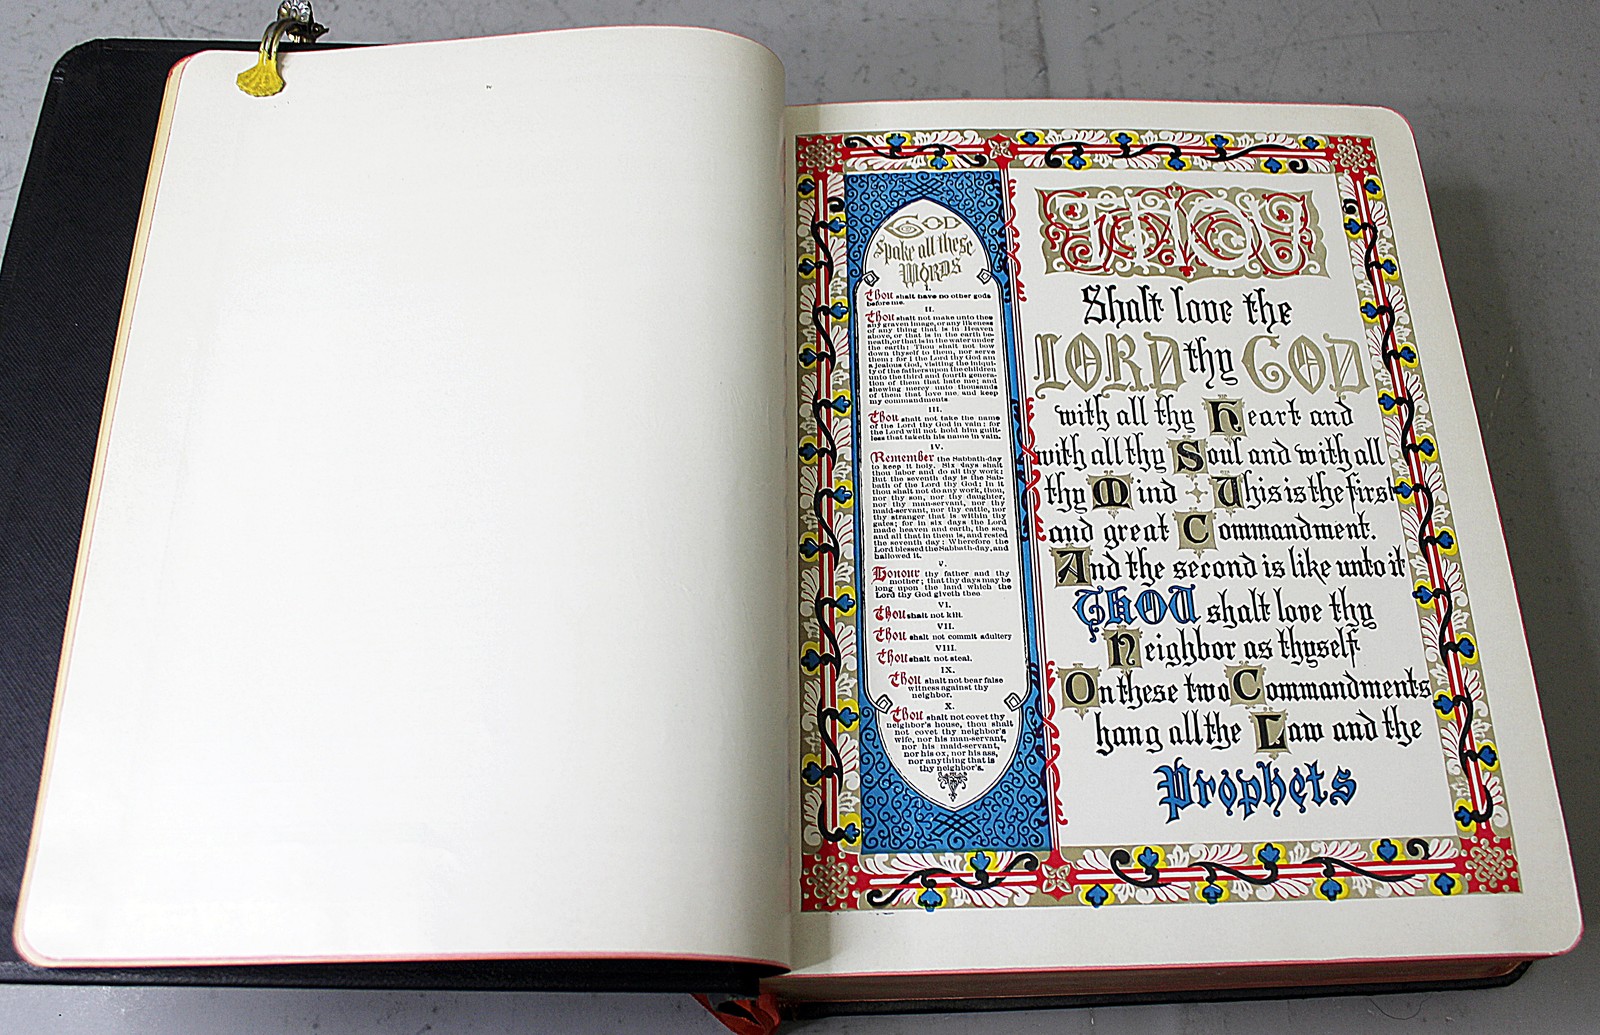 GOD
spake all these
WORDS
I.
Thou shalt have no other gods
before me.
II.
Thou shalt not make unto thee
any graven image, or any likeness
of any thing that is in Heaven
above, or that is in the earth be-
neath, or that is in the water under
the earth: Thou shalt not bow
down thyself to them, nor serve
them: for I the Lord thy God am
a jealous God, visiting the iniqui-
ty of the fathers upon the children
unto the third and fourth genera-
tion of them that hate me; and
shewing mercy unto thousands
of them that love me, and keep
my commandments
III.
Thou shalt not take the name
of the Lord thy God in vain: for
the Lord will not hold him guilt-
less that taketh his name in vain.
IV.
Remember the Sabbath-day
to keep it holy. Six days shalt
thou labor and do all thy work;
But the seventh day is the Sab-
bath of the Lord thy God; In it
thou shalt not do any work, thou,
nor thy son, nor thy daughter,
nor thy man-servant, nor thy
maid-servant, nor thy cattle, nor
thy stranger that is within thy
gates; for in six days the Lord
made heaven and earth, the sea,
and all that in them is, and rested
the seventh day; Wherefore the
Lord blessed the Sabbath-day, and
hallowed it.
V.
Honour thy father and thy
mother; that thy days may be
long upon the land which the
Lord thy God giveth thee
VI.
Thou shalt not kill.
VII.
Thou shalt not commit adultery
VIII.
Thou shalt not steal.
IX.
Thou shalt not bear false
witness against thy
neighbor.
X.
Thou shalt not covet thy
neighbor's house, thou shalt
not covet thy neighbor's
wife, nor his man-servant,
nor his maid-servant,
nor his ox, nor his ass,
nor anything that is
thy neighbor's.
THOU
Shalt love the
LORD thy GOD
with all thy Heart and
with all thy Soul and with all
thy Mind This is the first
and great Commandment.
And the second is like unto it
THOU shalt love thy
Neighbor as thyself
On these two Commandments
hang all the Law and the
Prophets